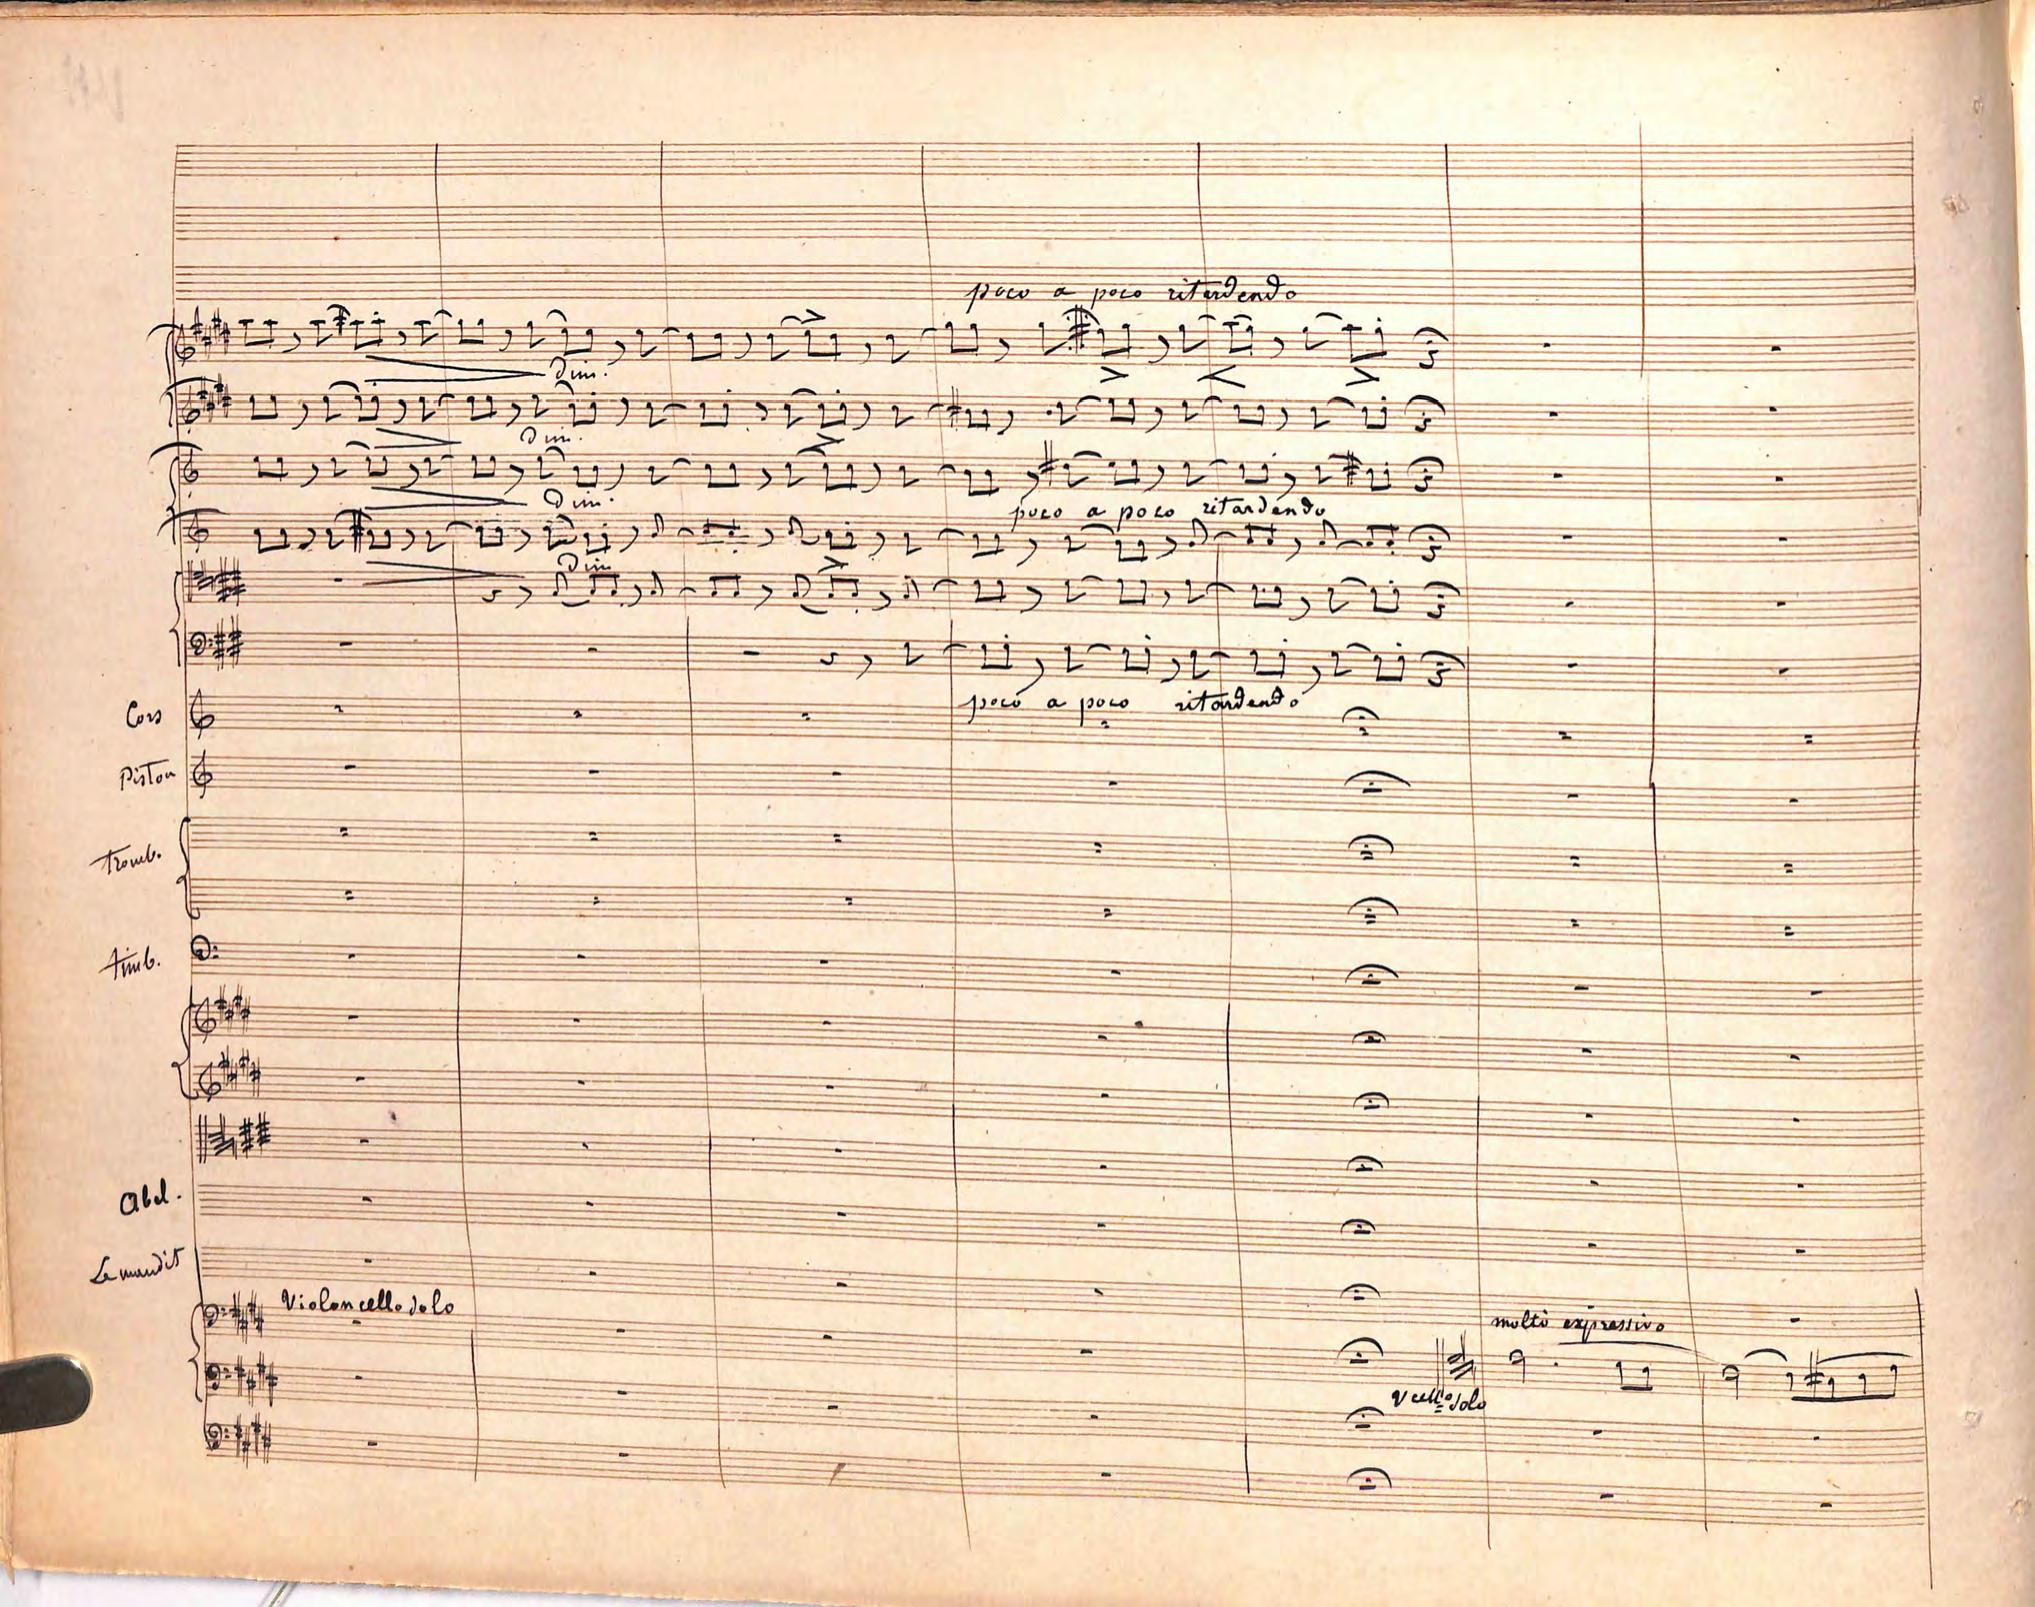 poco a poco ritardendo
dim.
dim.
dim.
poco a poco ritardendo
dim
poco a poco ritardendo
Cors
Piston
Tromb.
Timb.
Abel.
Le maudit
Violoncello solo
molto expressivo
Vcello solo